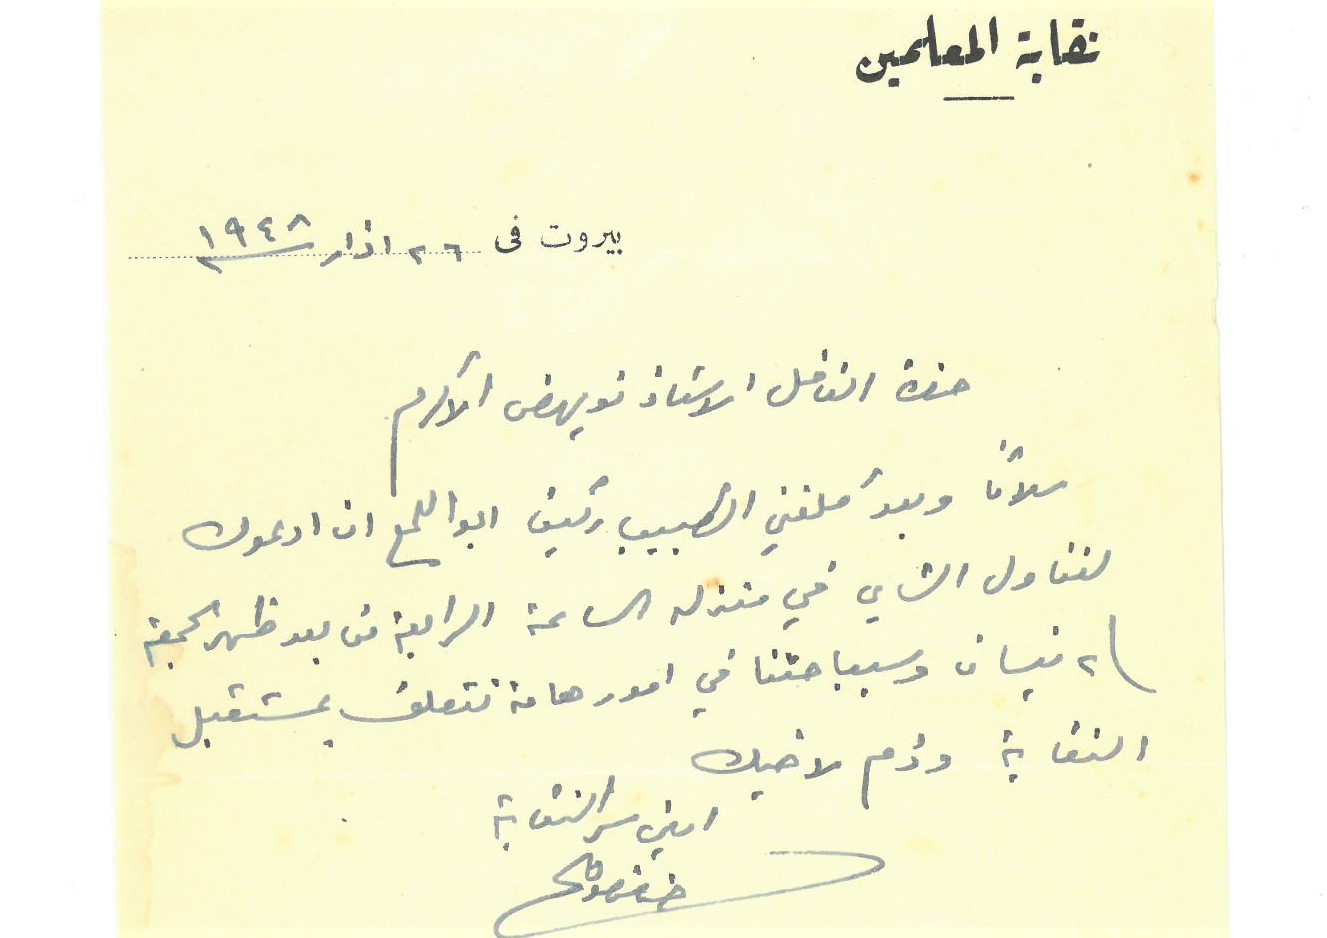 نقابة المعلمين
بيروت في ٢٦ اذار ١٩٤٨
حضرة الفاضل الاستاذ نويهض الاكرم
سلاماً وبعد كلفني الطبيب رئيف ابو اللمع ان ادعوك
لتناول الشاي في منزله الساعة الرابعة من بعد ظهر الجمعة
٢ نيسان وسيباحثنا في امور هامة تتعلق بمستقبل
النقابة ودم لاخيك
امين سر النقابة